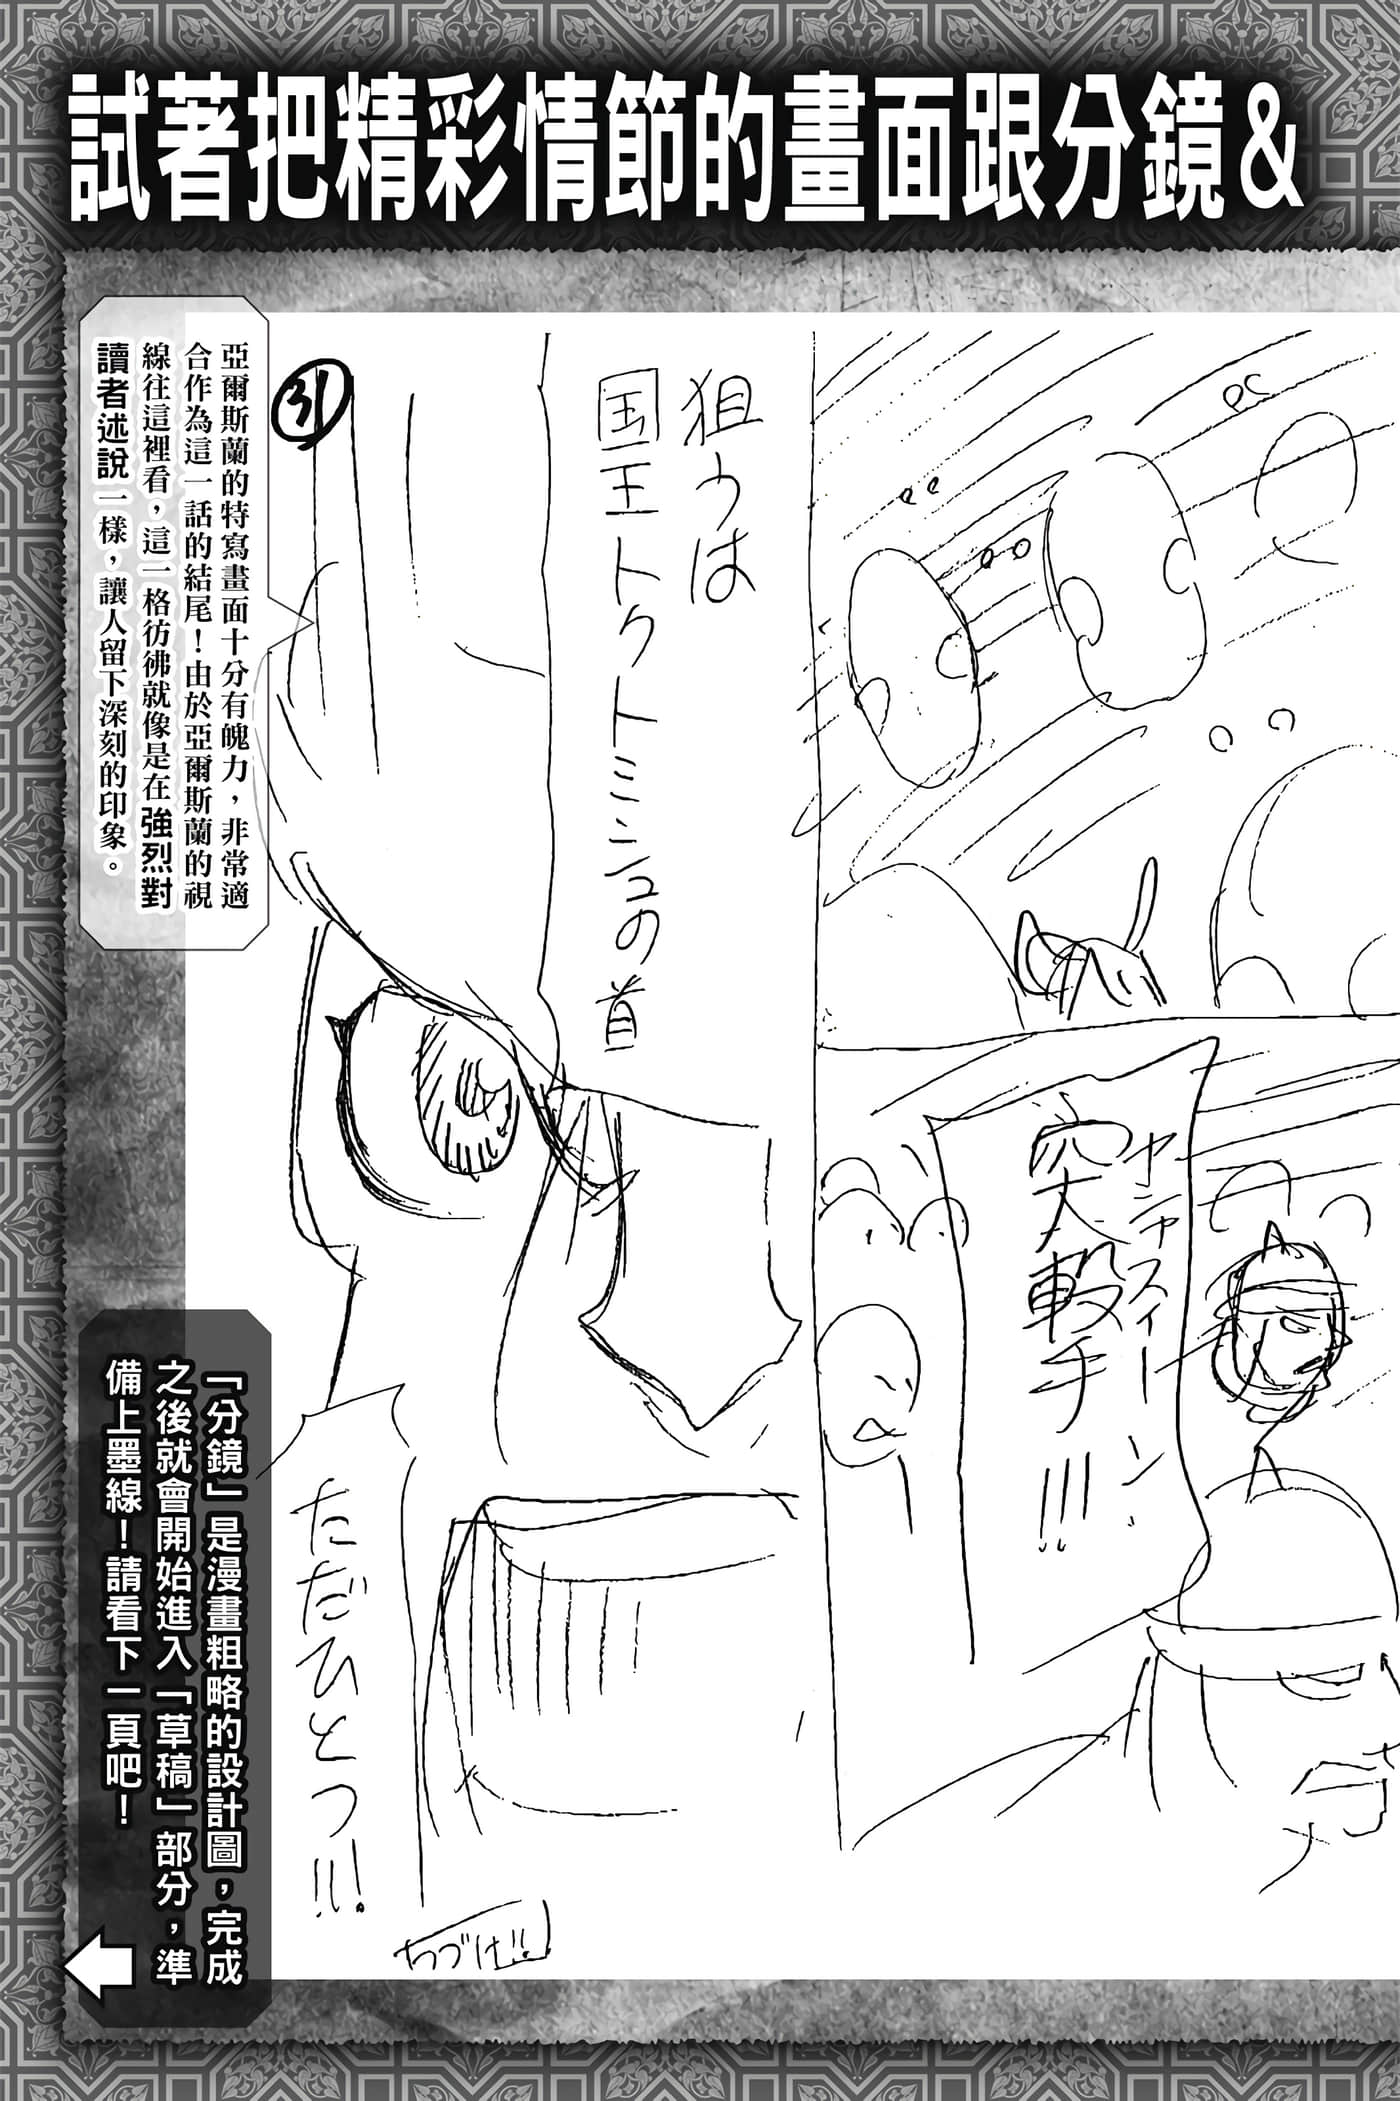 試著把精彩情節的畫面跟分鏡＆
ヤシャスィーン
突撃!!!
狙うは
国王トクトミシュの首
ただひとつ!!!
つづけ!!
31
亞爾斯蘭的特寫畫面十分有魄力，非常適
合作為這一話的結尾！由於亞爾斯蘭的視
線往這裡看，這一格彷彿就像是在強烈對
讀者述說一樣，讓人留下深刻的印象。
「分鏡」是漫畫粗略的設計圖，完成
之後就會開始進入「草稿」部分，準
備上墨線！請看下一頁吧！